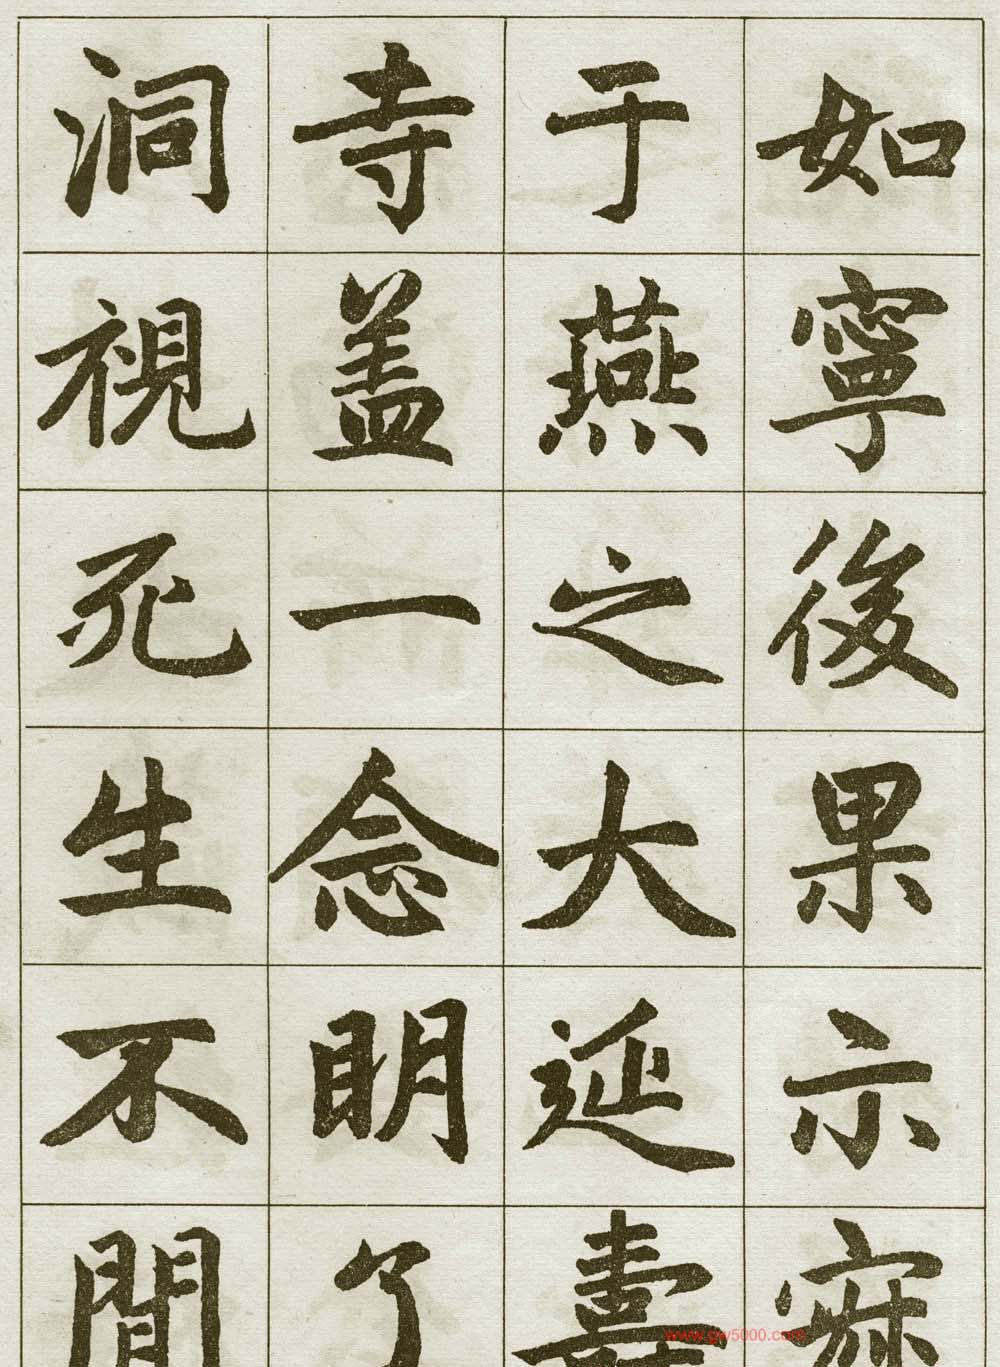 如寧後果示寂
于燕之大延壽
寺盖一念明了
洞視死生不間
www.gw5000.com